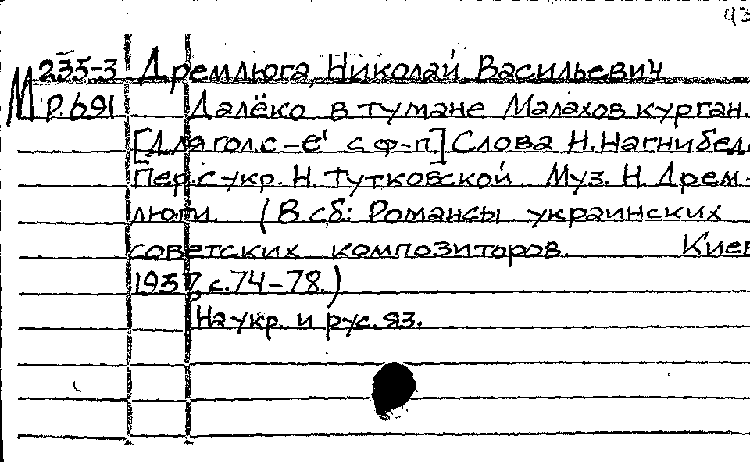 М 235-3 Дремлюга, Николай Васильевич
Р.691 Далёко в тумане Малахов курган.
[Для гол. с - е' с ф-п.] Слова Н. Нагнибед
Пер. с укр. Н. Тутковской Муз. Н. Дрем-
люги. (В сб: Романсы украинских
советских композиторов. Киев
1957, с. 74-78.)
На укр. и рус. яз.